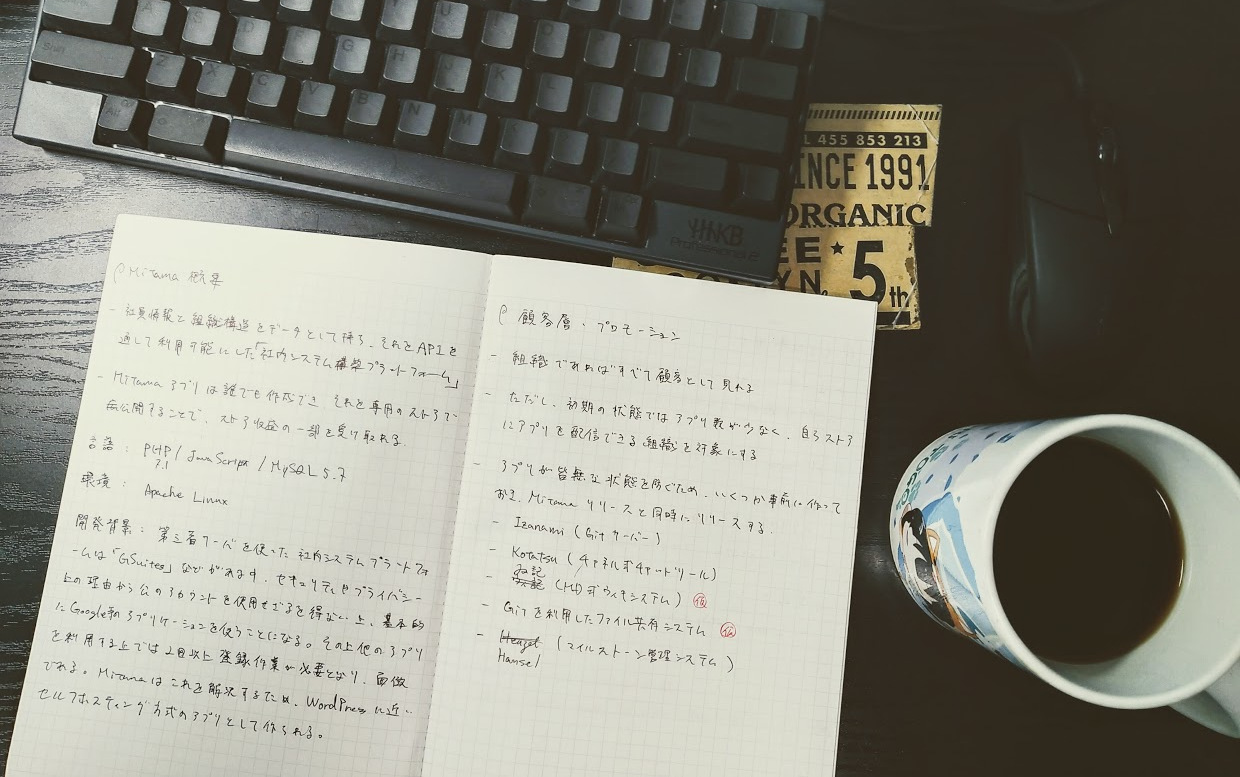 Shift
A S D F G H J K L
Z X C V B N M
Alt
HHKB
Professional 2
L 455 853 213
INCE 1991
ORGANIC
EE ★ 5th
YN,
Mitama 概要
- 社員情報と組織構造をデータとして持ち、それをAPIを
通して利用可能にした「社内システム構築プラットフォーム」
- Mitamaアプリは誰でも作成でき、それを専用のストアで
公開することで、ストア収益の一部を受け取れる。
言語: PHP / JavaScript / MySQL 5.7
7.1
環境: Apache Linux
開発背景: 第三者サーバを使った社内システムプラットフォ
ームは「GSuite」などがあります。セキュリティやプライバシー
上の理由から公のアカウントを使用せざるを得ない上、基本的
にGoogle系のアプリケーションを使うことになる。その上他のアプリ
を利用する上では2回以上登録作業が必要となり、面倒
である。Mitamaはこれを解決するため、WordPressに近い
セルフホスティング方式のアプリとして作られる。
顧客層・プロモーション
- 組織であればすべて顧客として見れる
- ただし、初期の状態ではアプリ数が少なく、自らストア
にアプリを配信できる組織を対象にする
- アプリが皆無な状態を防ぐため、いくつか事前に作って
おき、Mitamaリリースと同時にリリースする。
- Izanami (Gitサーバー)
- Kotatsu (チャネル式チャットツール)
- (MD式ウィキシステム) 仮
- Gitを利用したファイル共有システム 仮
- Hensel (マイルストーン管理システム)
Hansel